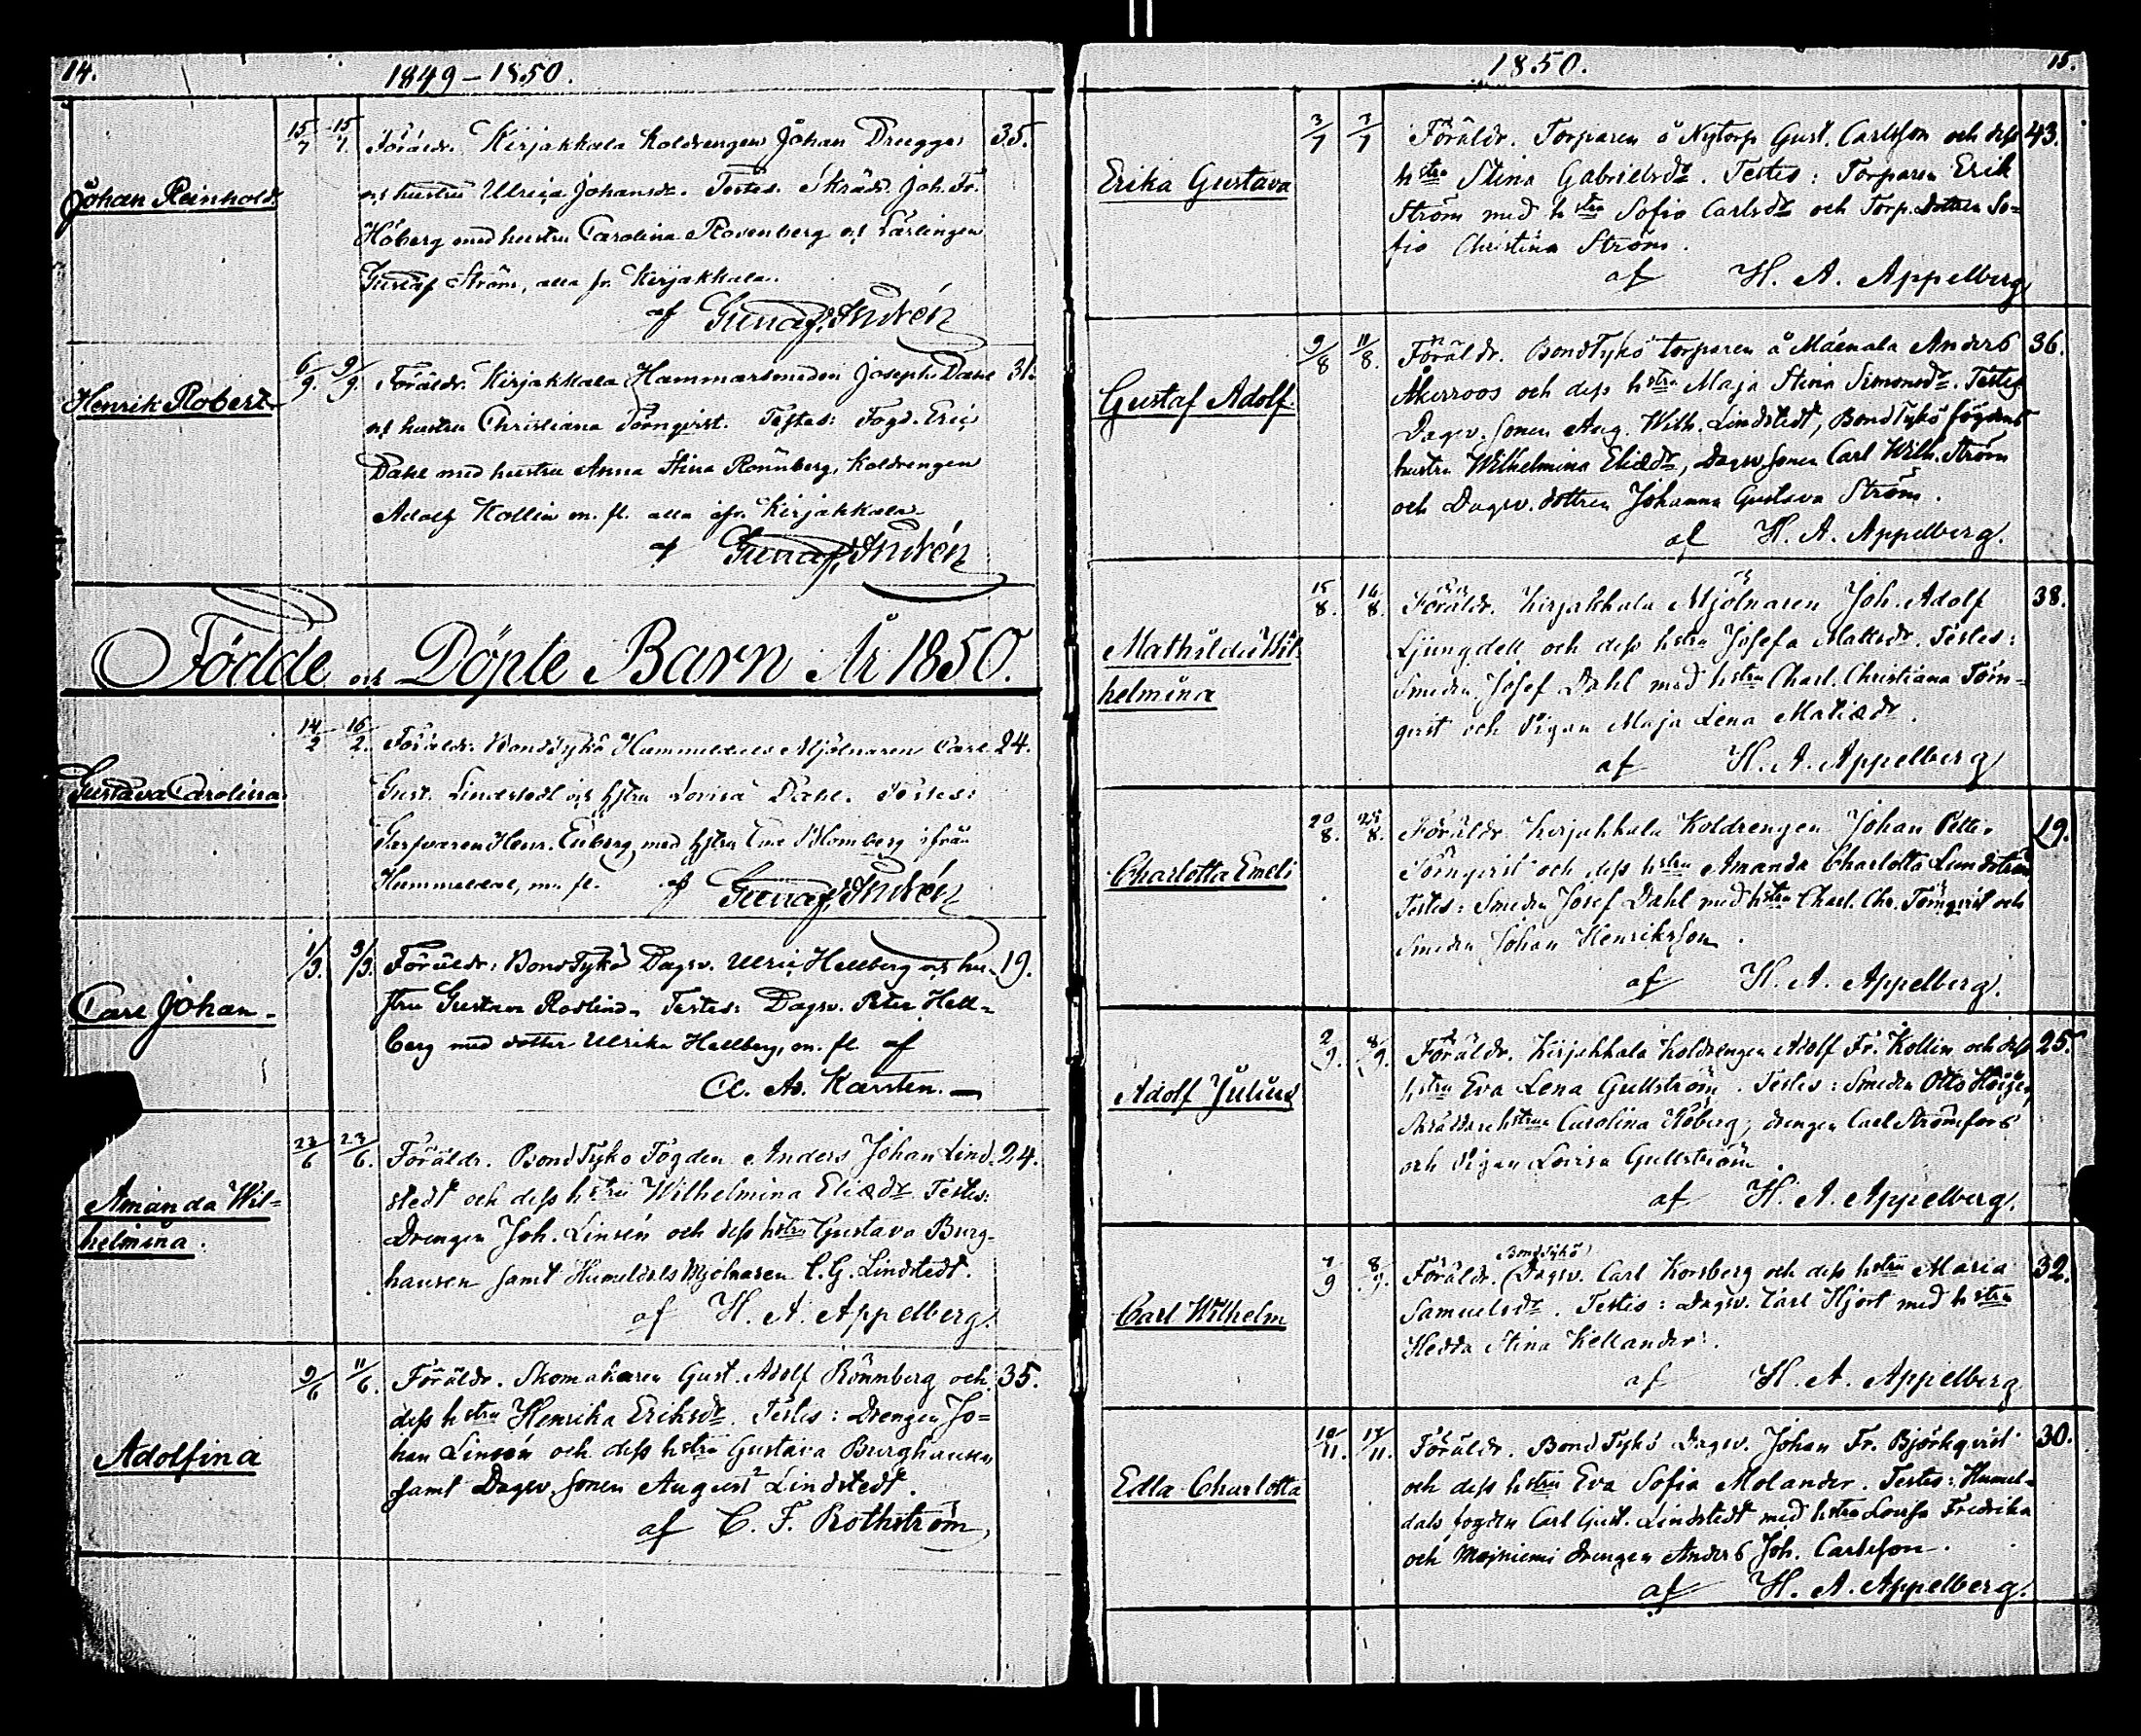 14.
1849–1850.
Johan Reinhold
15/7 15/7. Föräldr. Kirjakkala Koldrengen Johan Dregge 35.
och hustru Ulrica Johansdr. Testes: Skrädd. Joh. Fr.
Höberg med hustru Carolina Rosenberg och Lärlingen
Gustaf Ström, alla fr. Kirjakkala.
af Gustaf Andrén
Henrik Robert
6/9. 9/9. Föräldr. Kirjakkala Hammarsmeden Joseph Dahl 31.
och hustru Christiana Törnqvist. Testes: Fogd. Eric
Dahl med hustru Anna Stina Rönnberg, Koldrengen
Adolf Kollin m. fl. alla ifr. Kirjakkala
af Gustaf Andrén
Födde och Döpte Barn År 1850.
Gustava Carolina
14/2 16/2. Föräldr: Bondtykö Hummeldals Mjölnaren Carl 24.
Gust. Lindstedt och hstru Lovisa Dahl. Testes:
Garfvaren Henr. Enberg med hstru Blomberg ifrån
Hummeldal, m. fl. af Gustaf Andrén
Carl Johan.
1/3. 3/3. Föräldr: BondTykö Dagsv. Ulric Hellberg och hu- 19.
stru Gustava Roslind. Testes: Dagsv. Peter Hell-
berg med dotter Ulrika Hellberg, m. fl. af
A. Karsten.
Amanda Wil-
helmina.
23/6 23/6. Föräldr. BondTykö Fogden Anders Johan Lind- 24.
stedt och dess hstru Wilhelmina Eliædr. Testes:
Drengen Joh. Linsén och dess hstru Gustava Burg-
hausen samt Humeldals Mjölnaren C. G. Lindstedt.
af H. A. Appelberg.
Adolfina
9/6 11/6. Föräldr. Skomakaren Gust. Adolf Rönnberg och 35.
dess hstru Henrika Eriksdr. Testes: Drengen Jo-
han Linsén och dess hstru Gustava Burghausen
samt Dagsv. sonen August Lindstedt.
af C. F. Rothström
1850.
15.
Erika Gustava
3/7 7/7 Föräldr. Torparen å Nytorp Gust. Carlsson och dess 43.
hstru Stina Gabrielsdr. Testes: Torparen Erik
Ström med hstru Sofia Carlsdr och Torp. dottren So-
fia Christina Ström.
af H. A. Appelberg
Gustaf Adolf.
9/8 11/8. Föräldr. BondTykö torparen å Mäenala Anders 36.
Åkerroos och dess hstru Maja Stina Simonsdr. Testes
Dagsv. sonen Aug. Wilh. Lindstedt, BondTykö fogdens
hustru Wilhelmina Eliædr, Dagsv sonen Carl Wilh. Ström
och Dagsv. dottren Johanna Gustava Ström.
af H. A. Appelberg.
Mathilda Wil-
helmina
15/8. 16/8. Föräldr. Kirjakkala Mjölnaren Joh. Adolf 38.
Ljungdell och dess hstru Josefa Mattsdr. Testes:
Smeden Josef Dahl med hstru Charl. Christiana Törn-
qvist och Pigan Maja Lena Matisdr.
af H. A. Appelberg
Charlotta Emeli
20/8. 25/8. Föräldr. Kirjakkala Koldrengen Johan Petter 29.
Törnqvist och dess hstru Amanda Charlotta Lundström
Testes: Smeden Josef Dahl med hstru Charl. Chr. Törnqvist och
Smeden Johan Henriksson.
af H. A. Appelberg.
Adolf Julius
2/9. 8/9. Föräldr. Kirjakkala Koldrengen Adolf Fr. Kollin och dess 25.
hstru Eva Lena Gullström. Testes: Smeden Otto
Skräddare hstrun Carolina Höberg, drengen Carl Strömfors
och Pigan Lovisa Gullström.
af H. A. Appelberg.
Carl Wilhelm
7/9 8/9. Föräldr. BondTykö Dagsv. Carl Korsberg och dess hstru Maria 32.
Samuelsdr. Testes: Dagsv. Carl Hjort med hstru
Hedda Stina Kellander.
af H. A. Appelberg
Edla Charlotta
10/11. 17/11. Föräldr. BondTykö Dagsv. Johan Fr. Björkqvist 30.
och dess hstru Eva Sofia Molander. Testes: Humel-
dals fogden Carl Gust. Lindstedt med hstru Lovisa Fredrika
och Mojniemi drengen Anders Joh. Carlsson.
af H. A. Appelberg.